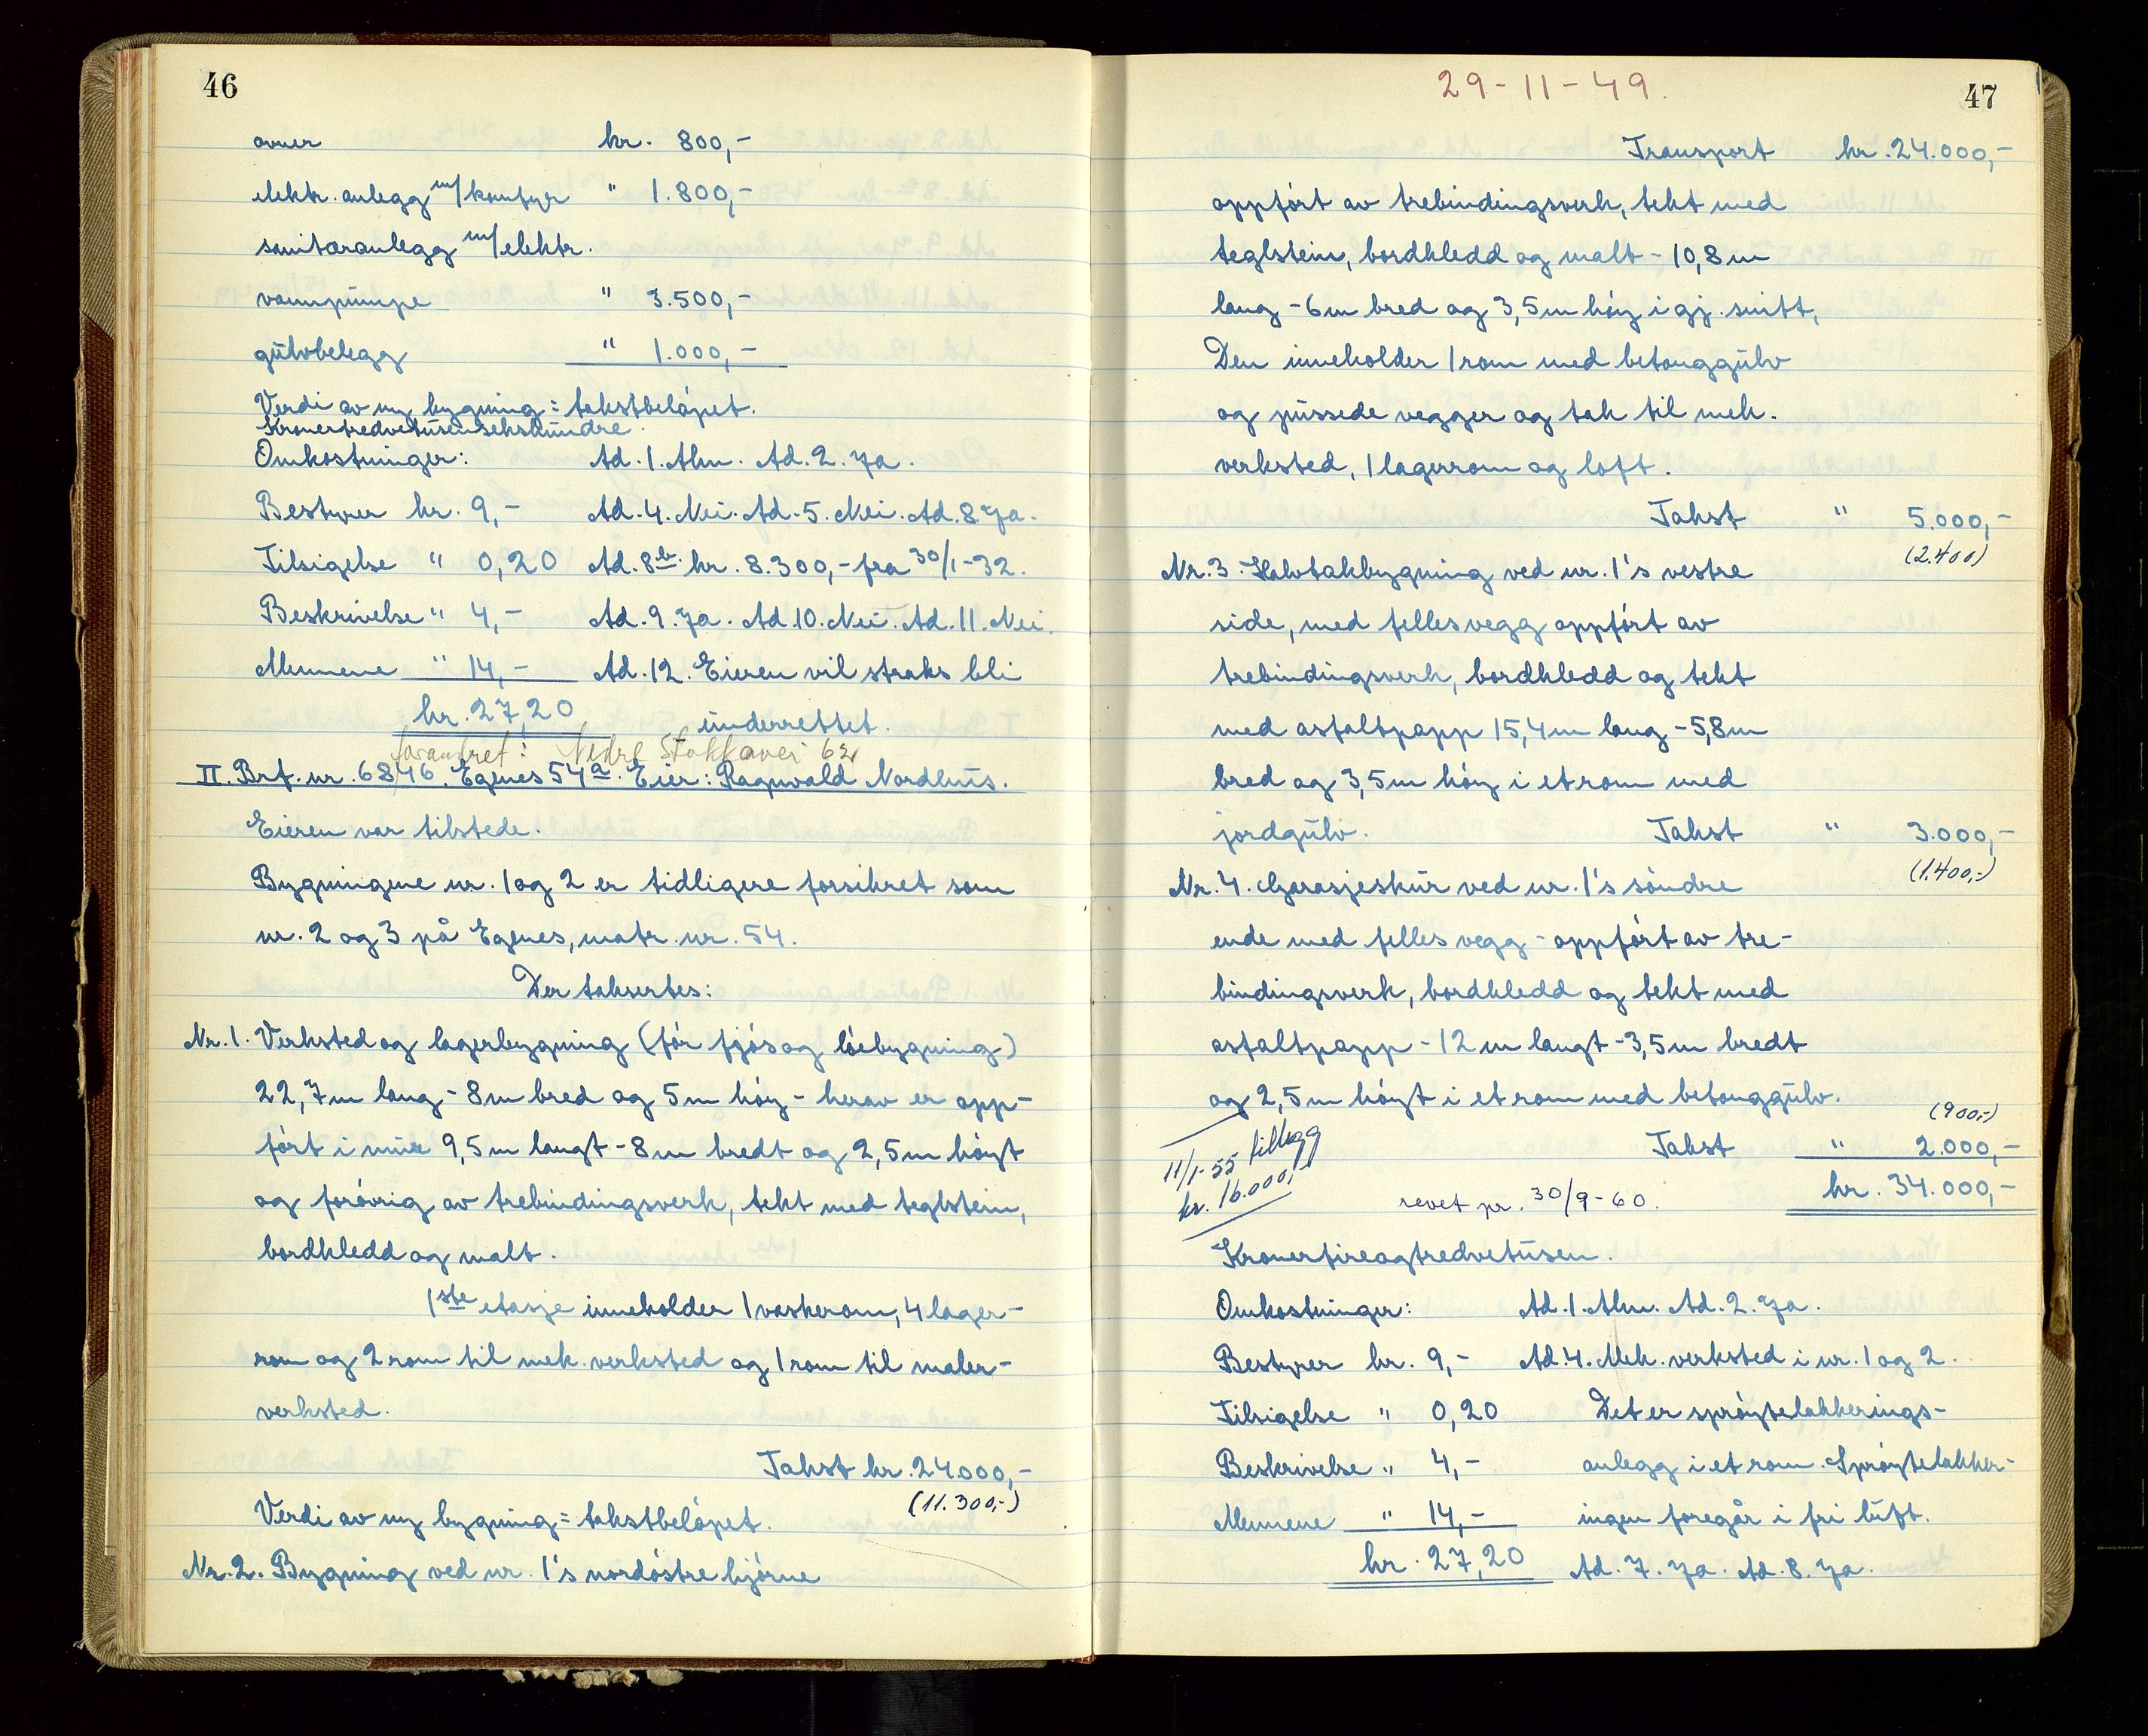 46
ovner kr. 800,-
elektr. anlegg m/komfyr " 1.800,-
sanitæranlegg m/elektr.
vannpumpe " 3.500,-
gulvbelegg " 1.000,-
Verdi av ny bygning = takstbeløpet.
Kronertredvetusensekshundre.
Omkostninger: Ad. 1. Alm. Ad. 2. Ja.
Bestyrer kr. 9,- Ad. 4. Nei. Ad. 5. Nei. Ad. 8. Ja.
Tilsigelse " 0,20 Ad. 8b. kr. 8.300,- fra 30/1-32.
Beskrivelse " 4,- Ad. 9. Ja. Ad. 10. Nei. Ad. 11. Nei.
Mennene " 14,- Ad. 12. Eieren vil straks bli
kr. 27,20 underrettet.
forandret: Nedre Stokkavei 62
II. Brf. nr. 6846. Egenes 54a. Eier: Ragnvald Nordhus.
Eieren var tilstede.
Bygningene nr. 1 og 2 er tidligere forsikret som
nr. 2 og 3 på Egenes, matr. nr. 54.
Der taksertes:
Nr. 1. Verksted og lagerbygning (før fjøs og løebygning)
22,7m lang - 8m bred og 5m høy - herav er opp-
ført i mur 9,5m langt - 8m bredt og 2,5m høyt
og forøvrig av trebindingsverk, tekt med teglstein,
bordkledd og malt.
1ste etasje inneholder 1 vaskerom, 4 lager-
rom og 2 rom til mek. verksted og 1 rom til maler-
verksted.
Takst kr. 24.000,-
(11.300,-)
Verdi av ny bygning = takstbeløpet.
Nr. 2. Bygning ved nr. 1's nordøstre hjørne
29-11-49.
47
Transport kr. 24.000,-
oppført av trebindingsverk, tekt med
teglstein, bordkledd og malt - 10,8m
lang - 6m bred og 3,5m høy i gj. snitt,
Den inneholder 1 rom med betonggulv
og pussede vegger og tak til mek.
verksted, 1 lagerrom og loft.
Takst " 5.000,-
(2.400)
Nr. 3. Halvtakbygning ved nr. 1's vestre
side, med felles vegg oppført av
trebindingsverk, bordkledd og tekt
med asfaltpapp 15,4m lang - 5,8m
bred og 3,5m høy i et rom med
jordgulv. Takst " 3.000,-
(1.400,-)
Nr. 4. Garasjeskur ved nr. 1's søndre
ende med felles vegg - oppført av tre-
bindingsverk, bordkledd og tekt med
asfaltpapp - 12m langt - 3,5m bredt
og 2,5m høyt i et rom med betonggulv.
(900,-)
Takst " 2.000,-
11/1-55 tillegg
kr. 16.000,-
revet pr. 30/9-60. kr. 34.000,-
Kronerfireogtredvetusen.
Omkostninger: Ad. 1. Alm. Ad. 2. Ja.
Bestyrer kr. 9,- Ad. 4. Mek. verksted i nr. 1 og 2.
Tilsigelse " 0,20 Det er sprøytelakkerings-
Beskrivelse " 4,- anlegg i et rom. Sprøytelakker-
Mennene " 14,- ingen foregår i fri luft.
kr. 27,20 Ad. 7. Ja. Ad. 8. Ja.